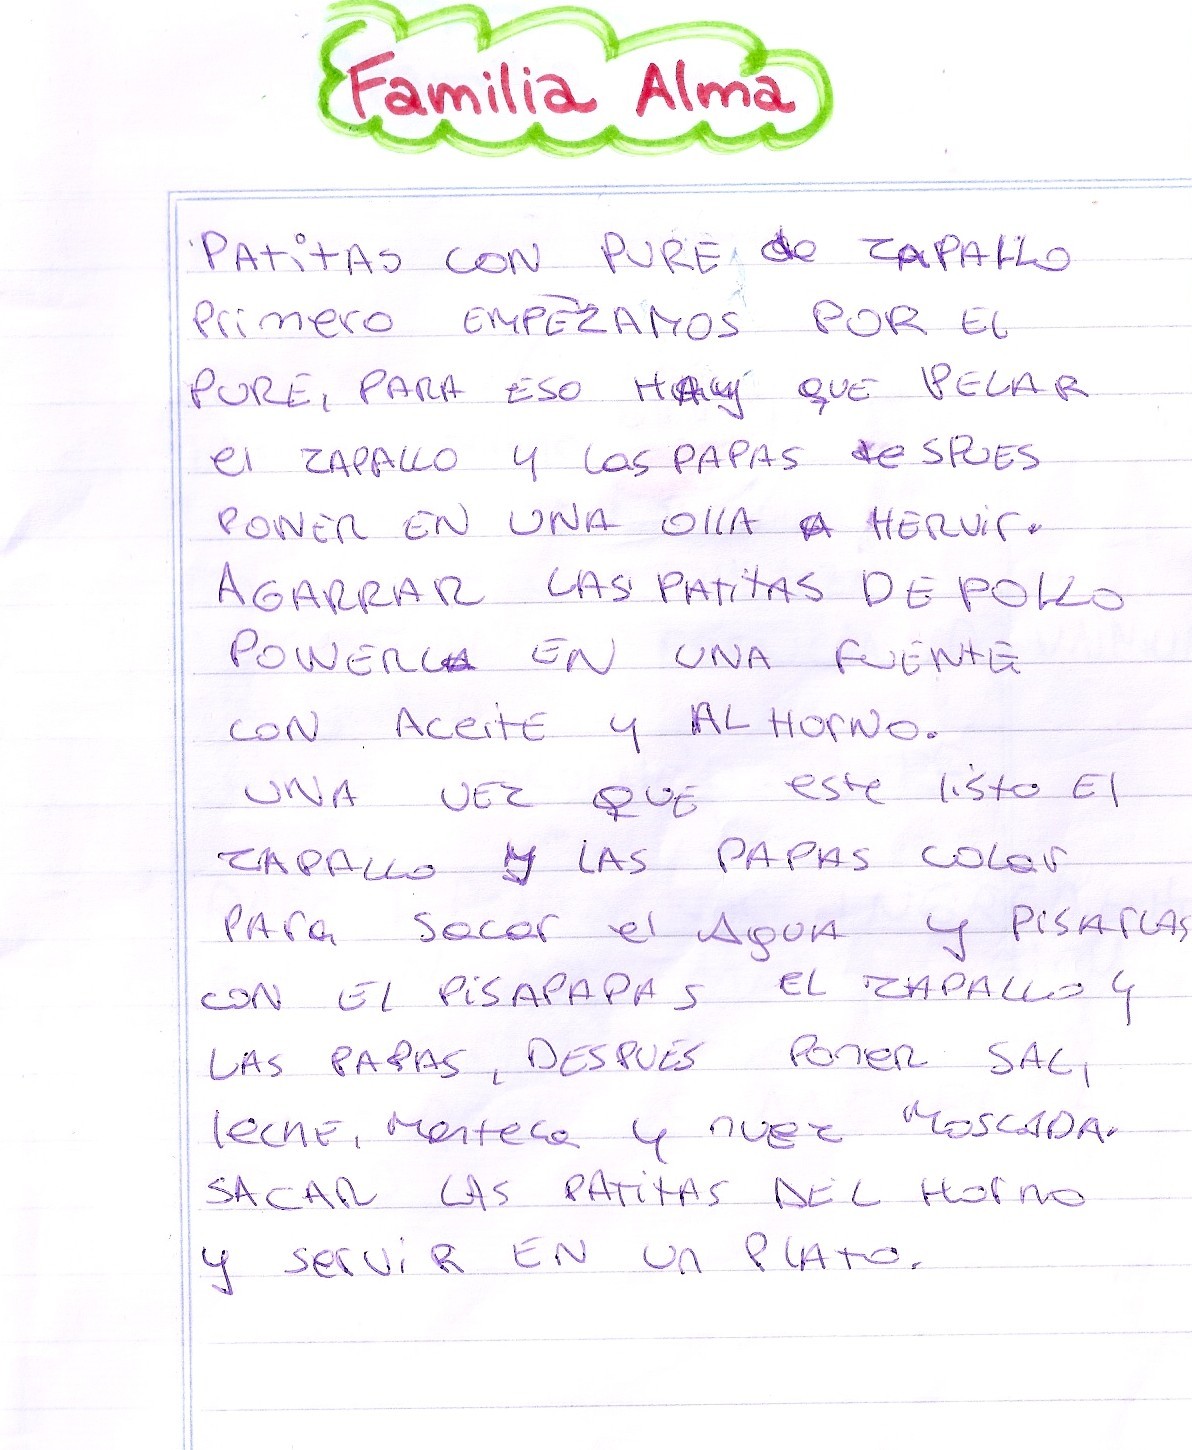 Familia Alma
PAtitAS CON PURE de ZAPALLO
Primero EMPEZAMOS POR EL
PURE, PARA ESO HAy QUE PELAR
el ZAPALLO y las PAPAS deSPUES
PONER EN UNA OllA A HERVir.
AGARRAR LAS PAtitAS DE POLLO
PONERLA EN UNA FUENtE
CON ACeitE y AL HOrNO.
UNA VEZ QUE este listo El
ZAPALLO y LAS PAPAS COLar
PAra Sacar el AgUA y PISArLAS
CON EL PiSAPAPAS EL ZAPALLO y
LAS PAPAS, DESPUES PonER SAL,
lecHE, Manteca y nuez MOSCADA.
SACAR LAS PAtitAS DEL Horno
y serviR EN un PLAtO.